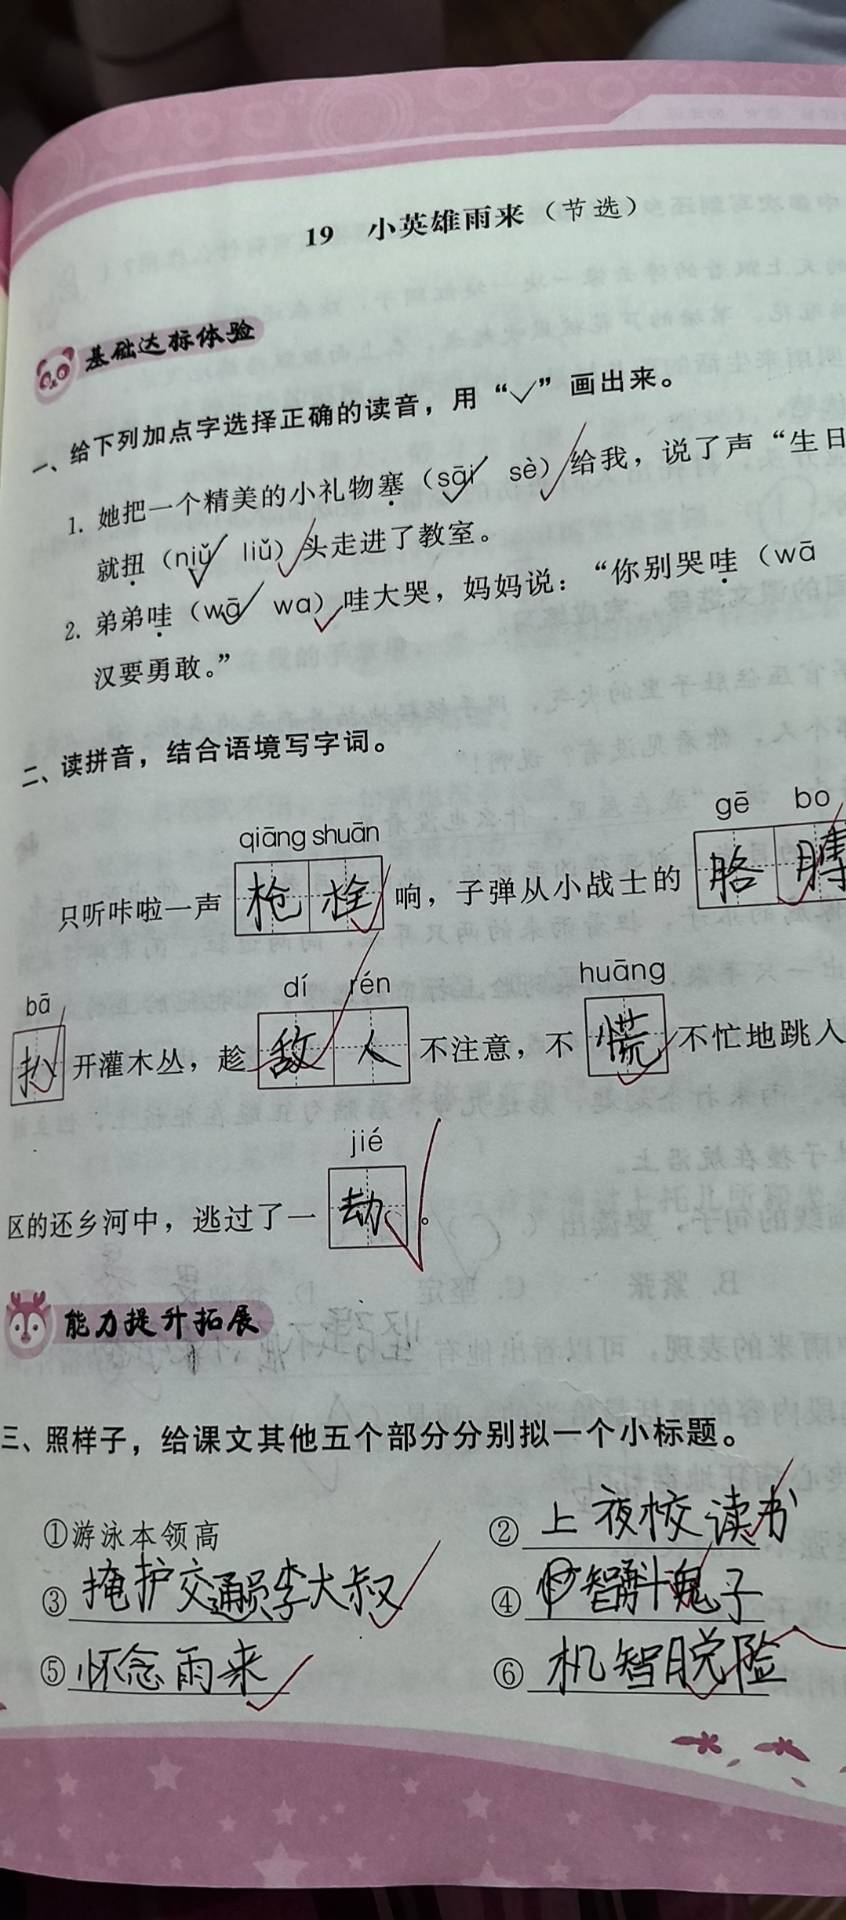 19 小英雄雨来（节选）
基础达标体验
一、给下列加点字选择正确的读音，用“✓”画出来。
1. 她把一个精美的小礼物塞（sāi sè）给我，说了声“生日
就扭（niǔ liǔ）头走进了教室。
2. 弟弟哇（wā wa）哇大哭，妈妈说：“你别哭哇（wā
汉要勇敢。”
二、读拼音，结合语境写字词。
qiāng shuān gē bo
只听咔啦一声 枪栓 响，子弹从小战士的 胳膊
bā dí rén huāng
扒 开灌木丛，趁 敌人 不注意，不 慌 不忙地跳入
jié
区的还乡河中，逃过了一 劫 。
能力提升拓展
三、照样子，给课文其他五个部分分别拟一个小标题。
①游泳本领高 ② 上夜校读书
③ 掩护交通员李大叔 ④ 智斗鬼子
⑤ 怀念雨来 ⑥ 机智脱险